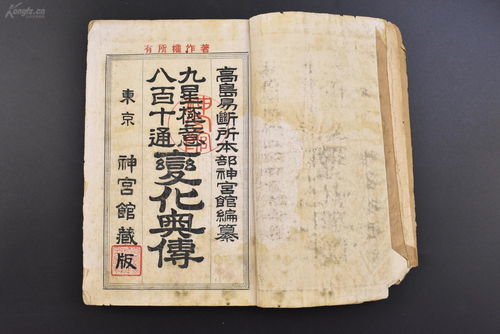 Kongfz.cn
著作権所有
高島易斷所本部神宮館編纂
九星極意
八百十通
變化奥傳
東京 神宮館藏版